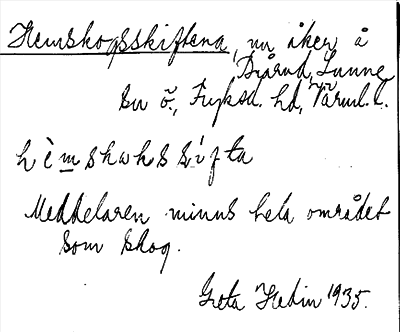 Hemskogsskiftena, nu åker å
Bjårud, Sunne
sn ö., Fryksd. hd, Värml. l.
hèmskwkssífta
Meddelaren minns hela området
som skog.
Greta Hedin 1935.